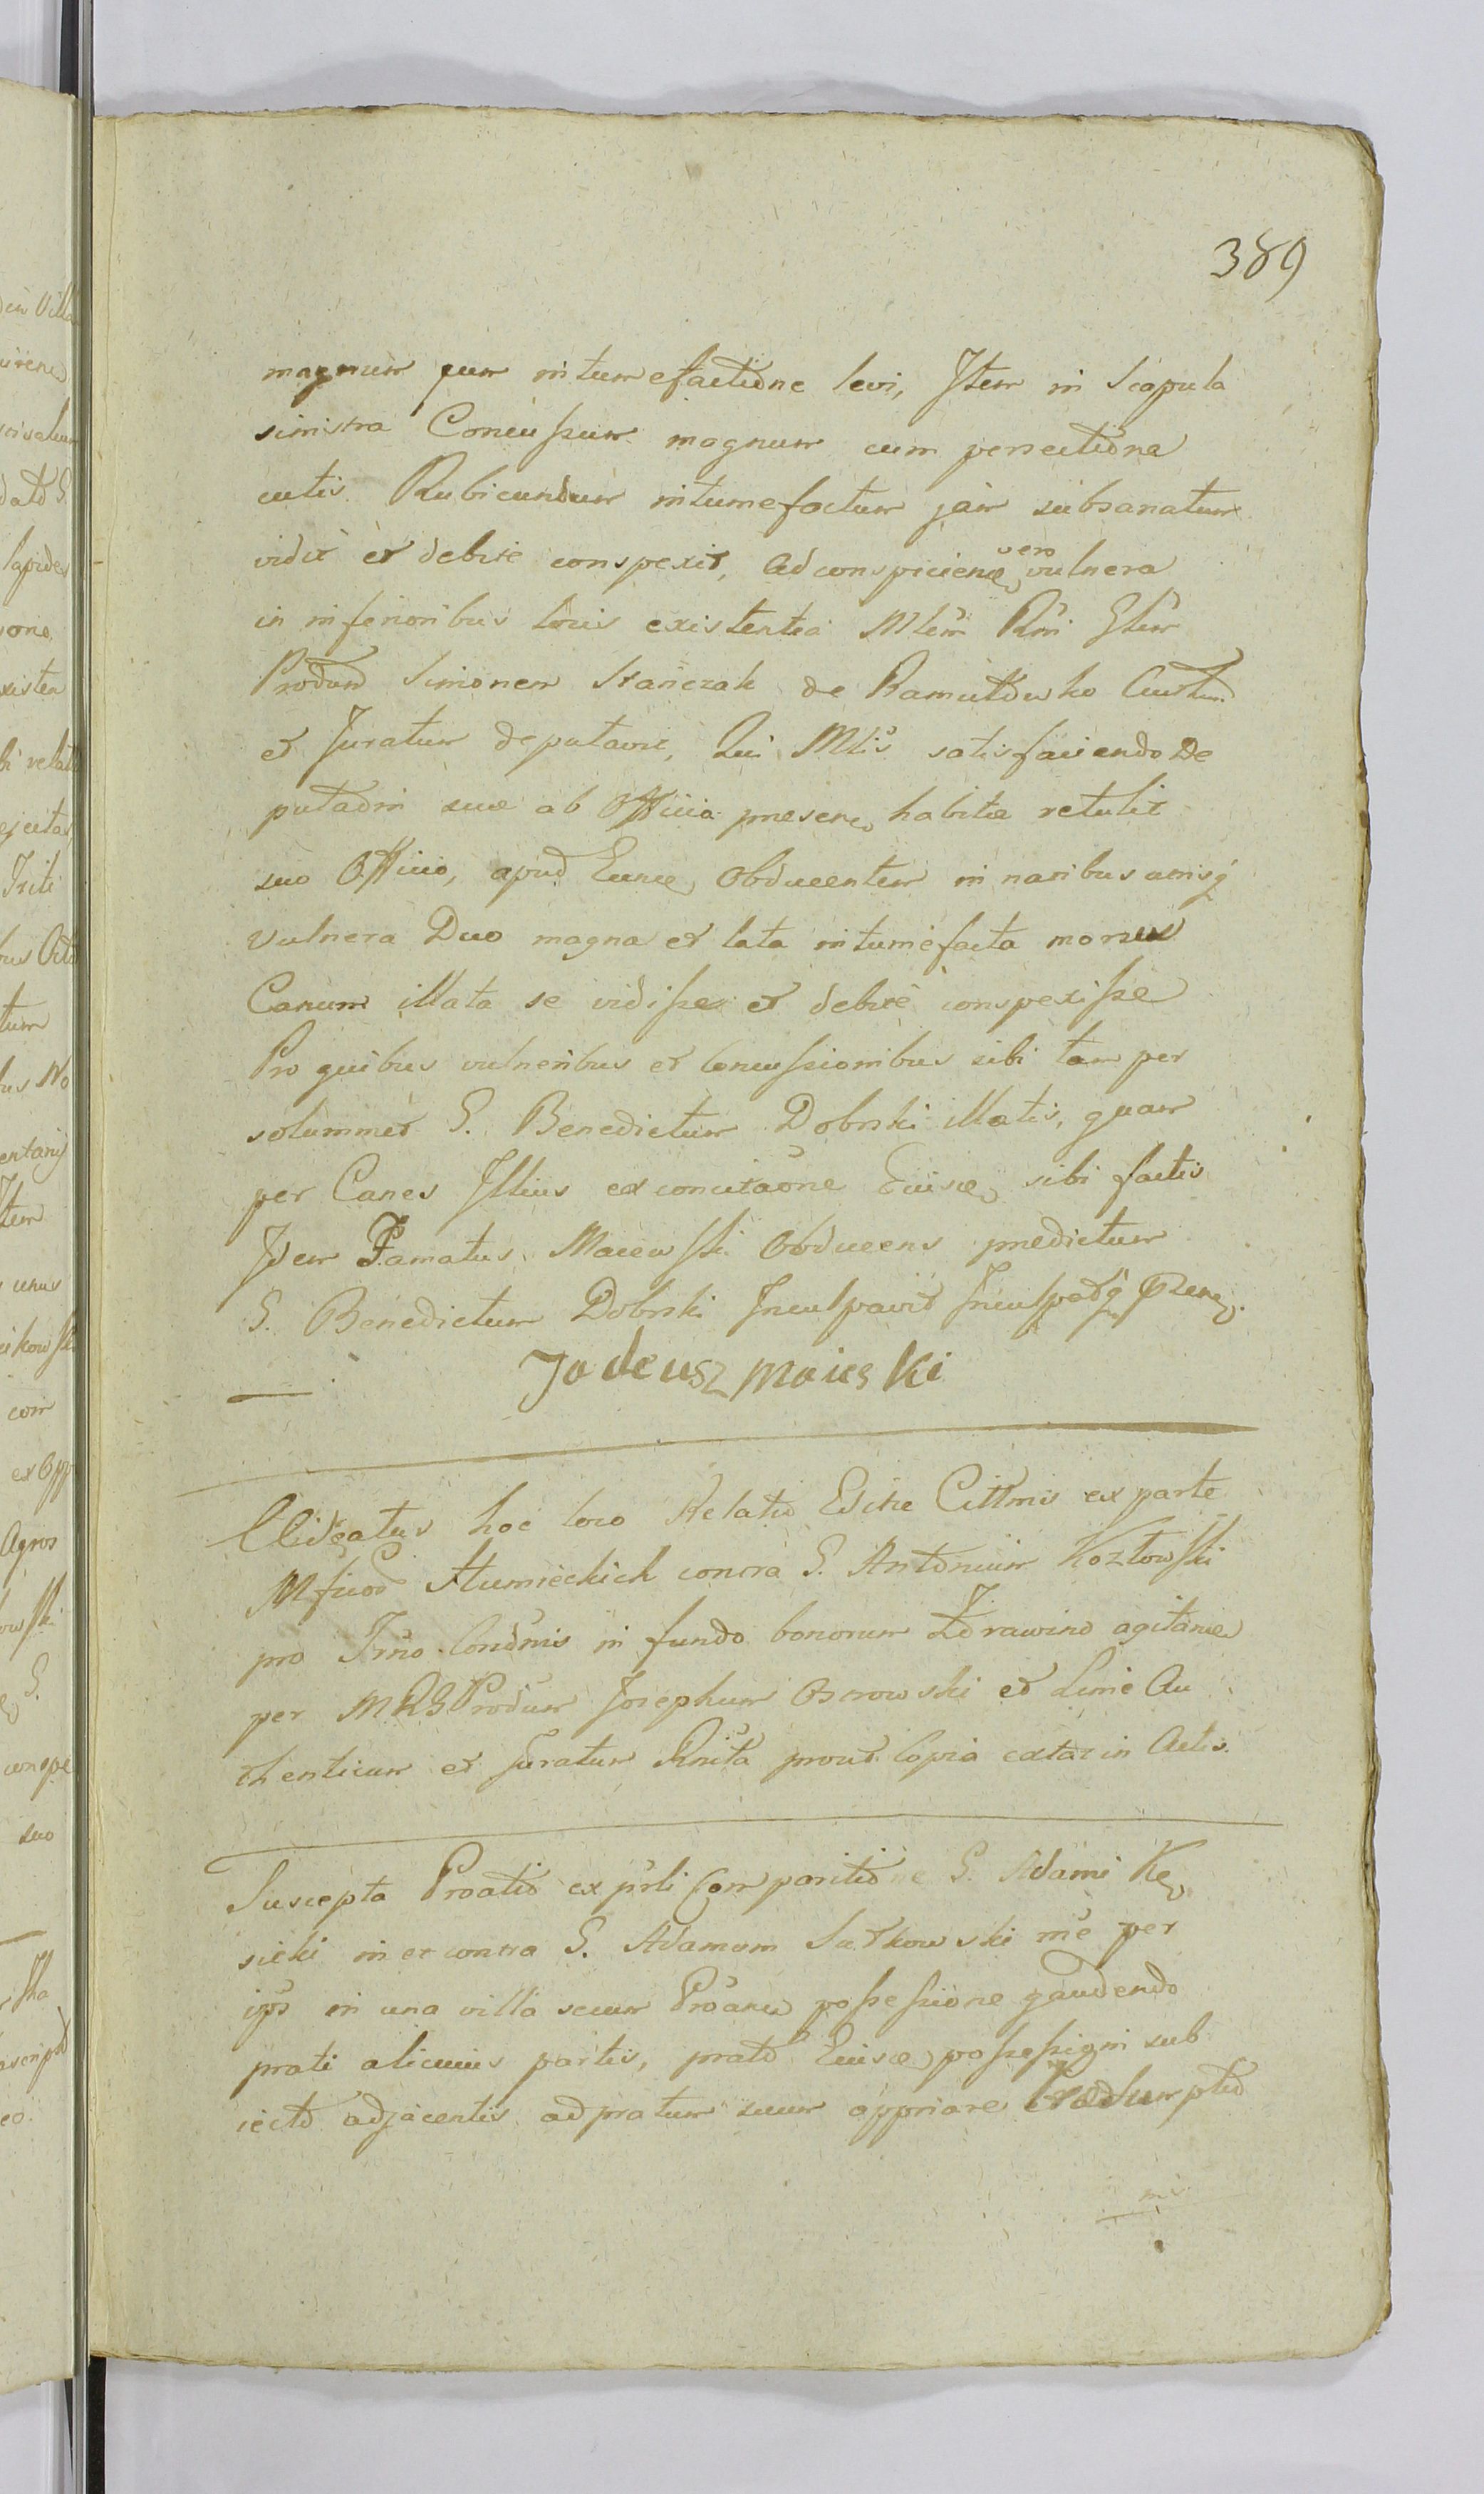 389
magnum cum intumefactione levi, Item in Scapula
sinistra Concussum magnum cum persectione
cutis Rubicundum intumefactum jam subsanatum
vidit et debite conspexit, Ad conspiciend vero vulnera
in inferioribus locis existentia Mlem Rni Glem
Produm Simonem Stanczak de Ramutowko Authen
et Juratum deputavit, Qui Mlis satisfaciendo De
putaoni suae ab Officio presen habitae retulit
suo Officio, apud Eunde Obducentem in naribus unisq
vulnera Duo magna et lata intumefacta morsu
Canum illata se vidisse et debite conspexisse
Pro quibus vulneribus et concussionibus sibi tam per
solummet G. Benedictum Dobrski illatis, quam
per Canes Illius ex concitaone Eiusd sibi factis
Idem Famatus Maiewski Obducens predictum
G. Benedictum Dobrski Inculpavit Inculpatq Presen.
Tadeusz Maieski
Videatur hoc loco Relatio Edite Cittnis ex parte
Mficor Humieckich contra G. Antonium Kozlowski
pro Trno Condnis in fundo bonorum Zdrawino agitan
per MRG Produm Josephum Osrowski et Lime Au
thenticum et Juratum Rnita prout Copia extat in Actis.
Suscepta Proatio ex prli Comparitione G. Adami Kę
sicki in et contra G. Adamum Sutkowski me per
ips in una villa secum Proan possessione gaudendo
prati alicuius partis, prato Eiusd possessioni sub
iecto adjacentis ad pratum suum appriare Praesumptio